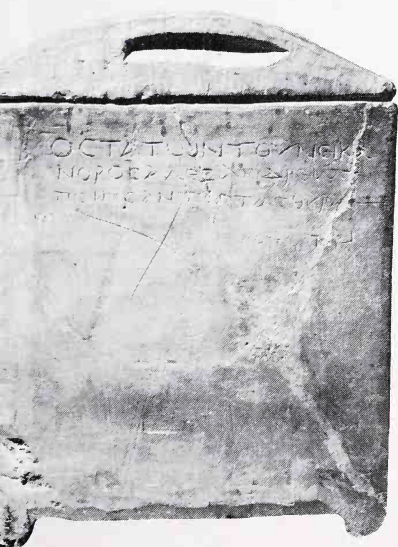 ΟCΤΑΤΩΝΤΟΥΝΕΙΚΑ
ΝΟΡΟCΑΛΕΞΑΝΔΡΕΩC
ΠΟΙΗCΑΝΤΟCΤΑCΘΥΡΑC